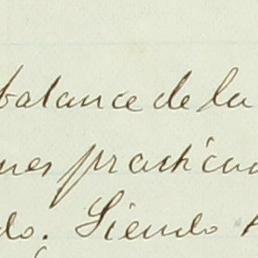 balance de la
nes practica
do. Siendo